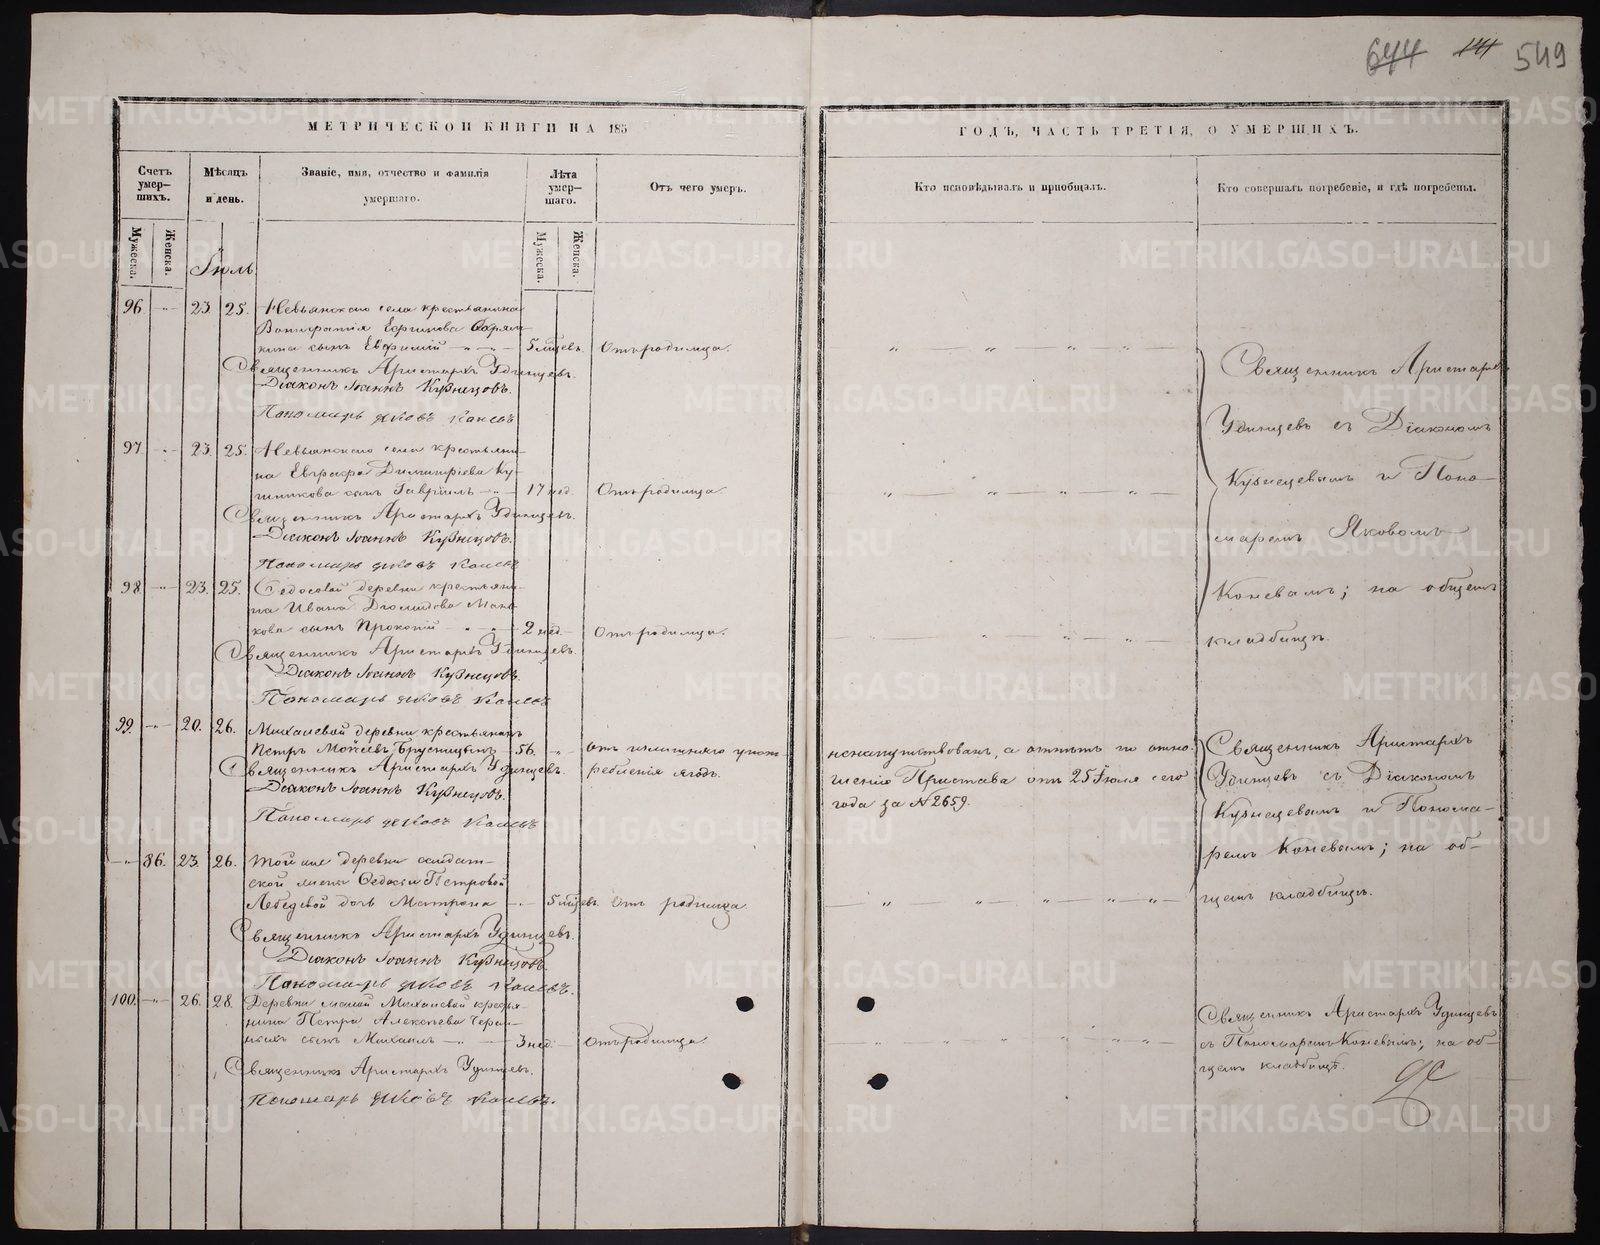 644 141 549
МЕТРИЧЕСКОЙ КНИГИ НА 185
ГОДЪ, ЧАСТЬ ТРЕТІЯ, О УМЕРШИХЪ.
Счетъ умер-шихъ.
Мѣсяцъ и день.
Званіе, имя, отчество и фамилія умершаго.
Лѣта умер-шаго.
Отъ чего умеръ.
Кто исповѣдывалъ и пріобщалъ.
Кто совершалъ погребеніе, и гдѣ погребены.
Мужеска.
Женска.
Мужеска.
Женска.
Іюль
96 23 25. Невьянскаго села крестьянина
Ефимова
кина сынъ Евфимій 5 мѣсцевъ. Отъ родимца.
Священникъ Аристархъ Удинцевъ.
Діаконъ Іоаннъ Кузнецовъ.
Пономарь Яковъ Коневъ
97. 23. 25. Невьянскаго села крестьяни-
на Евграфа Димитріева Ку-
шникова сынъ Гавріилъ 17 нед. Отъ родимца.
Священникъ Аристархъ Удинцевъ.
Діаконъ Іоаннъ Кузнецовъ.
Пономарь Яковъ Коневъ
98. 23. 25. Ѳедосовой деревни крестьяни-
на Ивана Діомидова Мань-
кова сынъ Прокопій 2 нед. Отъ родимца.
Священникъ Аристархъ Удинцевъ.
Діаконъ Іоаннъ Кузнецовъ.
Пономарь Яковъ Коневъ
Священникъ Аристархъ
Удинцевъ съ Діакономъ
Кузнецовымъ и Поно-
маремъ Яковомъ
Коневымъ; на общемъ
кладбищѣ.
99. 20. 26. Михалевой деревни крестьянинъ
Петръ Моисѣевъ Брусницынъ 56. Отъ излишняго упот-
ребленія ягодъ.
Священникъ Аристархъ Удинцевъ.
Діаконъ Іоаннъ Кузнецовъ.
Пономарь Яковъ Коневъ
ненапутствованъ, а отпѣтъ по отно-
шенію Пристава отъ 25 Іюля сего
года за № 2659.
86. 23. 26. Той же деревни солдат-
ской жены Ѳедосьи Петровой
Лебедевой дочь Матрона 5 мѣсцевъ. Отъ родимца
Священникъ Аристархъ Удинцевъ.
Діаконъ Іоаннъ Кузнецовъ.
Пономарь Яковъ Коневъ.
Священникъ Аристархъ
Удинцевъ съ Діакономъ
Кузнецовымъ и Понома-
ремъ Коневымъ; на об-
щемъ кладбищѣ.
100. 26. 28. Деревни малой Михалевой крестья-
нина Петра Алексѣева Черем-
ныхъ сынъ Михаилъ 3 нед. Отъ родимца.
Священникъ Аристархъ Удинцевъ.
Пономарь Яковъ Коневъ.
Священникъ Аристархъ Удинцевъ
съ Пономаремъ Коневымъ; на об-
щемъ кладбищѣ.
METRIKI.GASO-URAL.RU